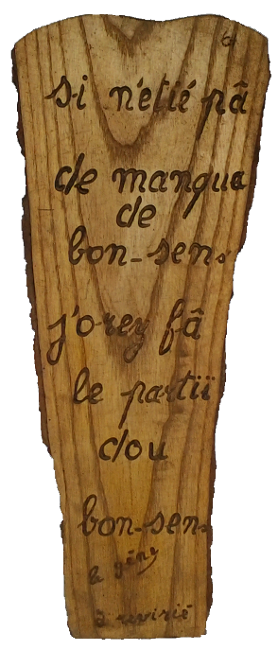 si n'etié pâ
de manqua
de
bon-sens
j'orey fâ
le partiï
dou
bon-sens
à revirié